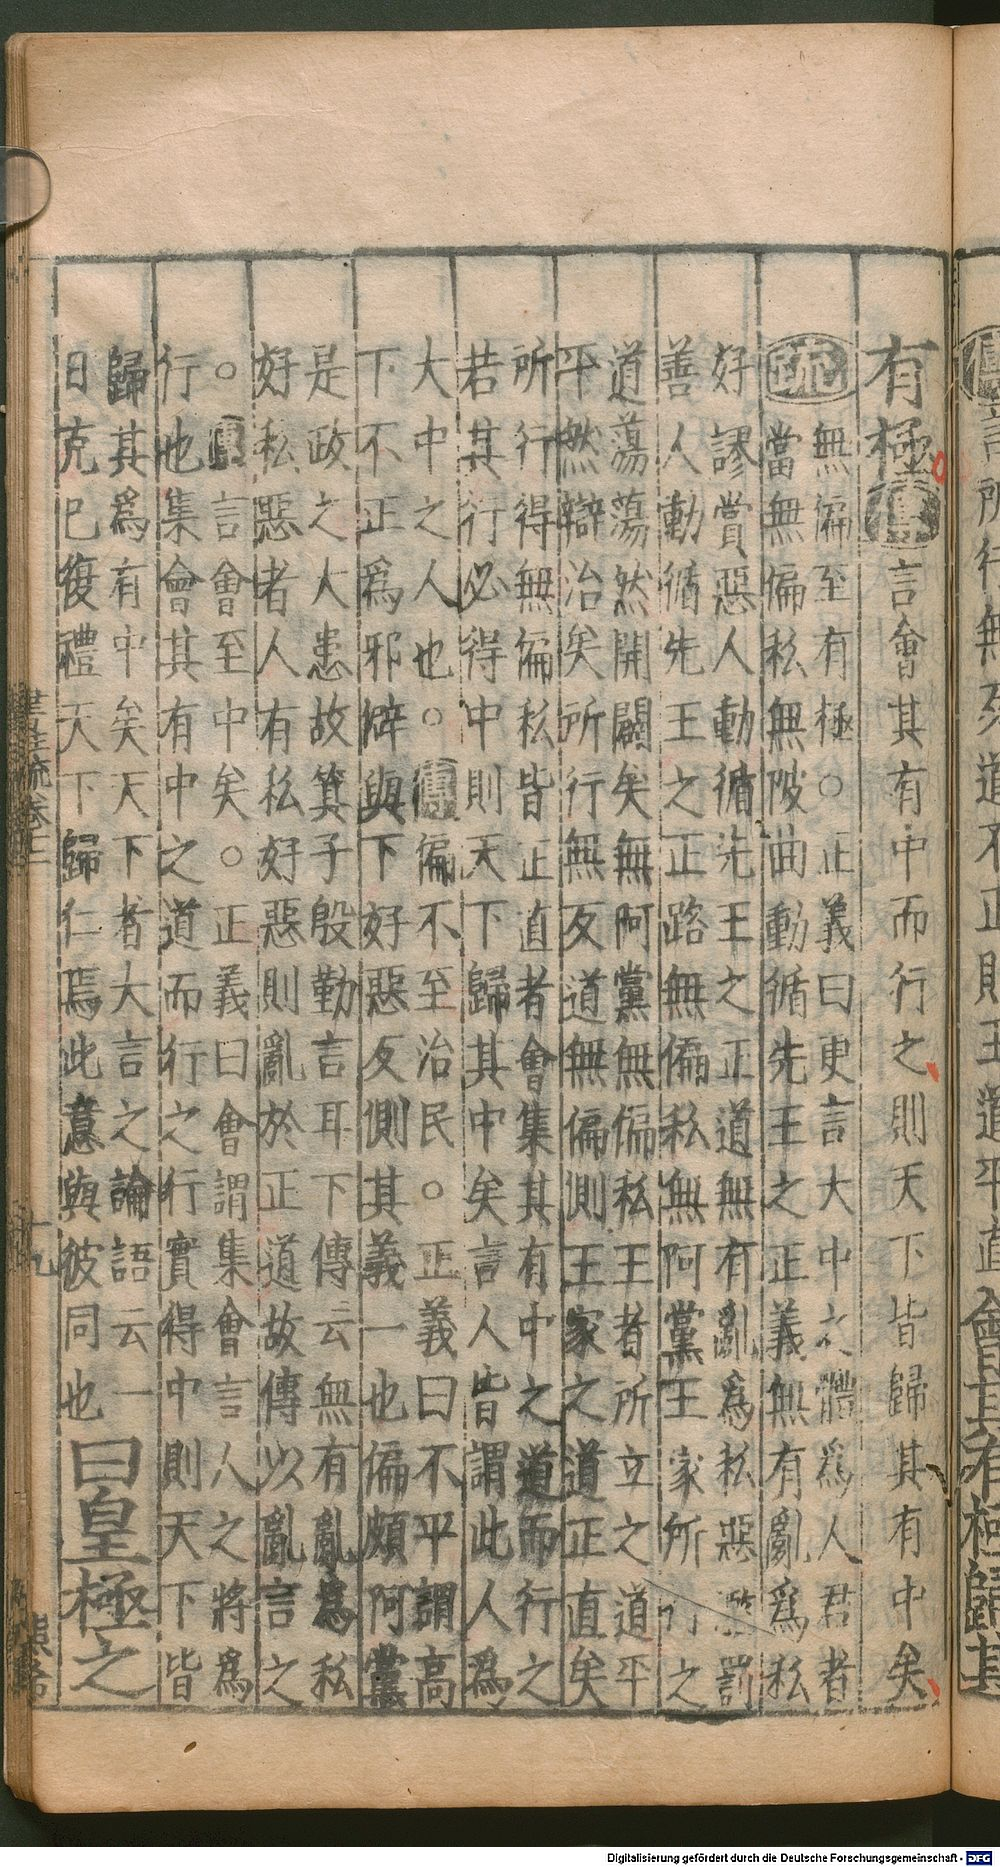 有極傳言會其有中而行之則天下皆歸其有中矣
疏無偏至有極○正義曰更言大中之體爲人君者
當無偏私無陂曲動循先王之正義無有亂爲私
好謬賞惡人動循先王之正道無有亂爲私惡濫罰
善人動循先王之正路無偏私無阿黨王家所行之
道蕩蕩然開闢矣無阿黨無偏私王者所立之道平
平然辯治矣所行無反道無偏側王家之道正直矣
所行得無偏私皆正直者會集其有中之道而行之
若其行必得中則天下歸其中矣言人皆謂此人爲
大中之人也○傳偏不至治民○正義曰不平謂高
下不正爲邪僻與下好惡反側其義一也偏頗阿黨
是政之大患故箕子殷勤言耳下傳云無有亂爲私
好私惡者人有私好惡則亂於正道故傳以亂言之
○傳言會至中矣○正義曰會謂集會言人之將爲
行也集會其有中之道而行之行實得中則天下皆
歸其爲有中矣天下者大言之論語云一
日克己復禮天下歸仁焉此意與彼同也曰皇極之
書注疏卷十二
十九
言所行無反道不正則王道平直會其有極歸其
Digitalisierung gefördert durch die Deutsche Forschungsgemeinschaft - DFG